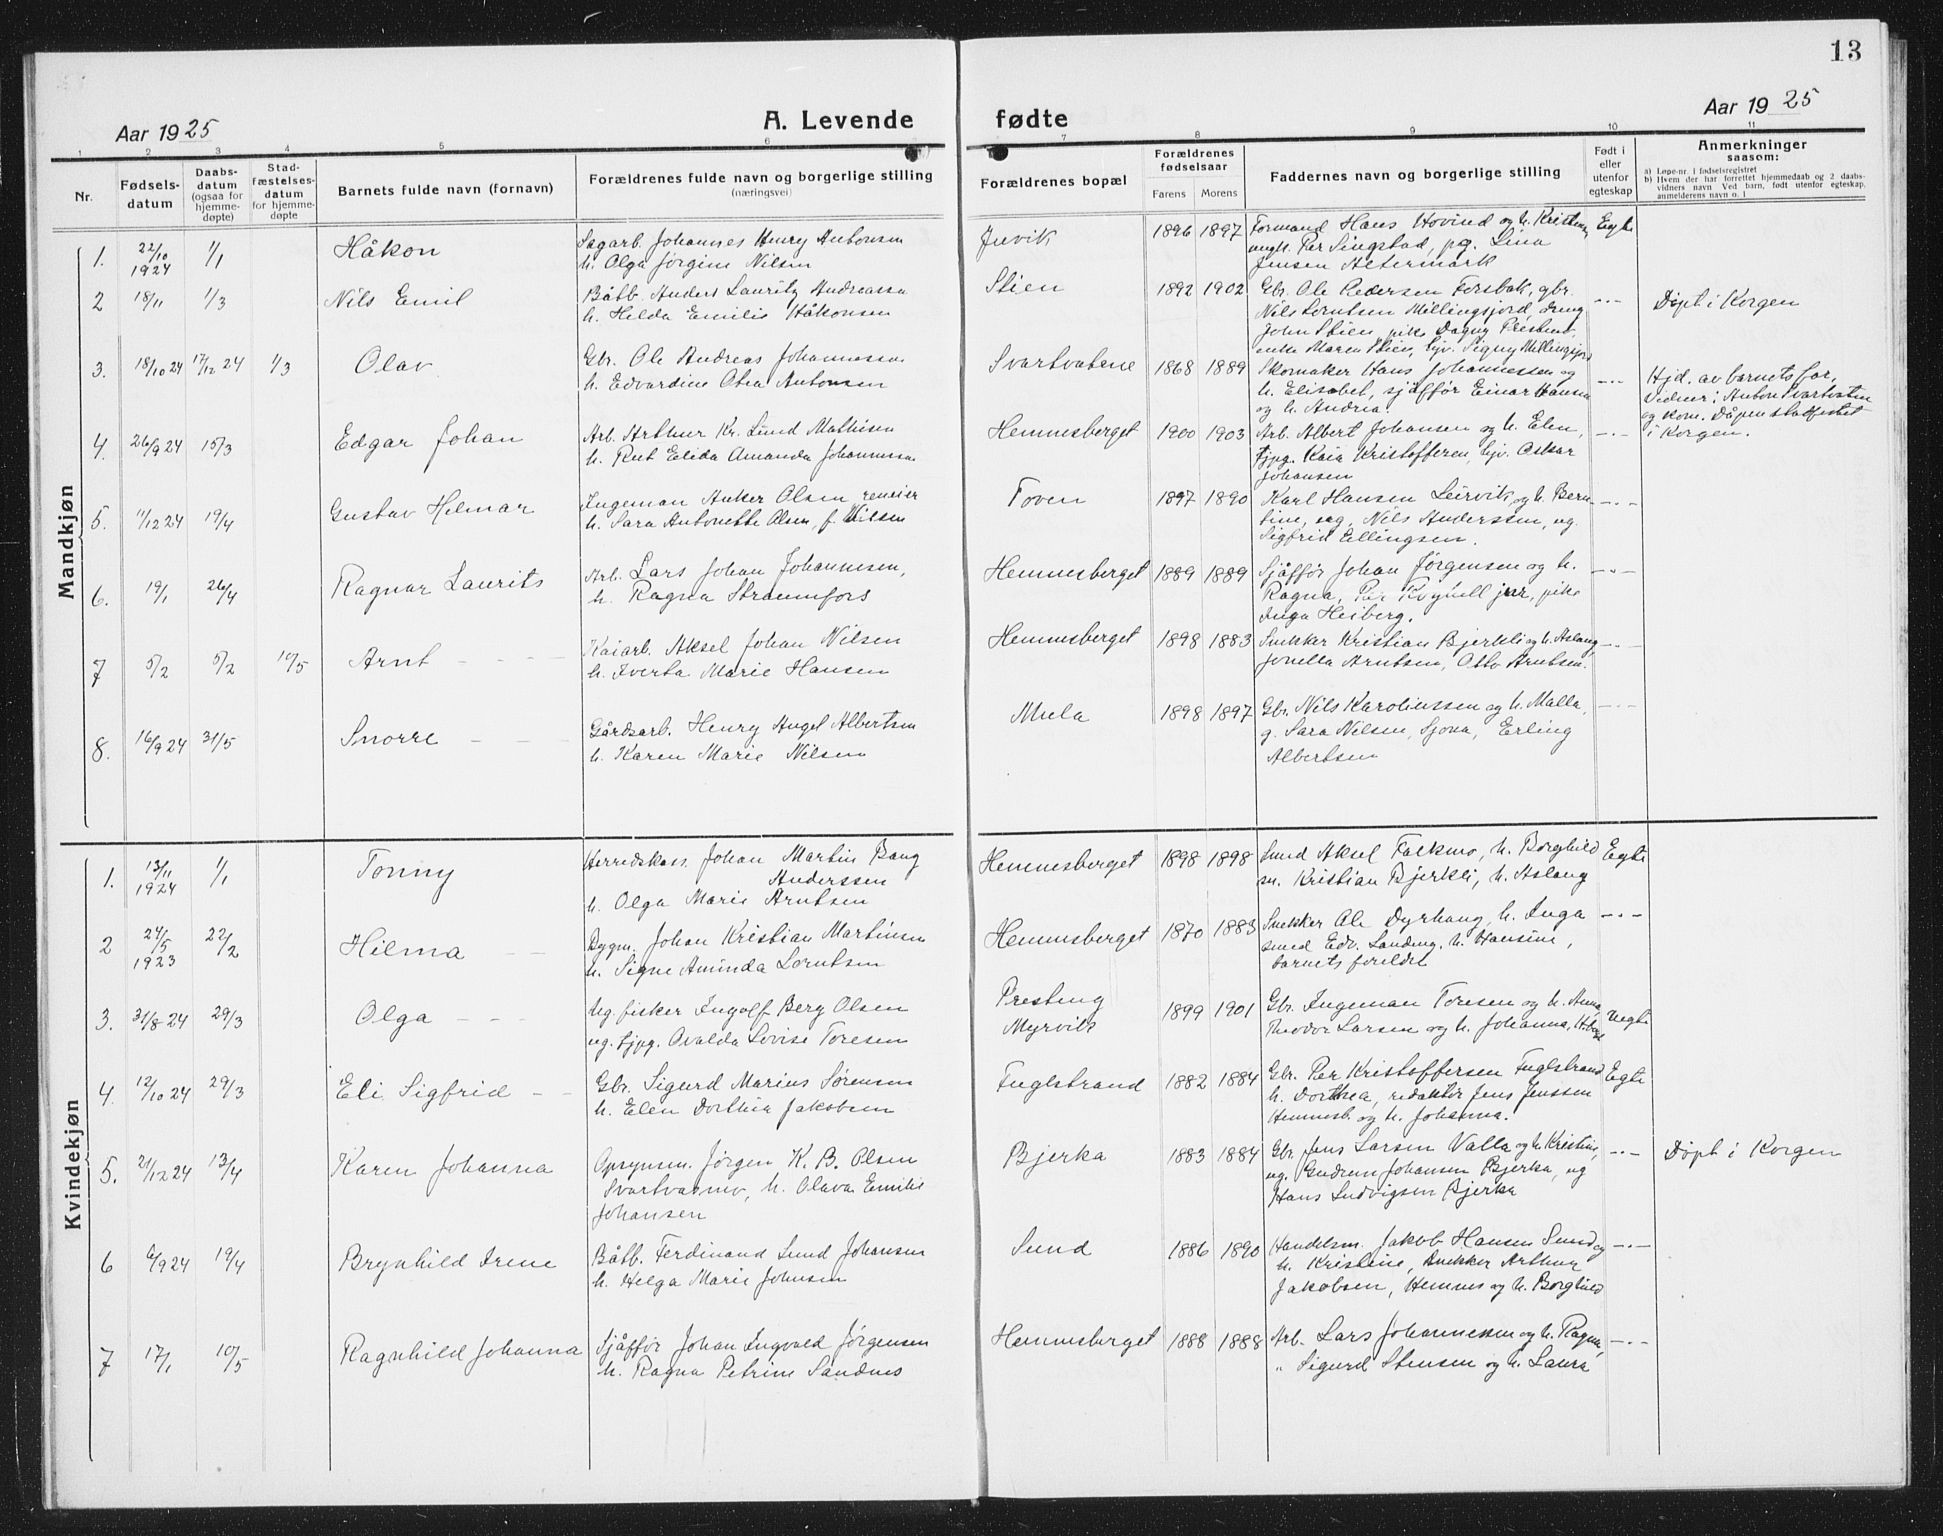 13
Aar 1925
A. Levende fødte
Aar 1925
1 2 3 4 5 6 7 8 9 10 11
Nr.
Fødsels-
datum
Daabs-
datum
(ogsaa for
hjemme-
døpte)
Stad-
fæstelses-
datum
for hjemme-
døpte
Barnets fulde navn (fornavn)
Forældrenes fulde navn og borgerlige stilling
(næringsvei)
Forældrenes bopæl
Forældrenes
fødselsaar
Farens Morens
Faddernes navn og borgerlige stilling
Født i
eller
utenfor
egteskap
Anmerkninger
saasom:
a) Løpe-nr. i fødselsregistret
b) Hvem der har forrettet hjemmedaab og 2 daabs-
vidners navn Ved barn, født utenfor egteskap,
anmelderens navn o. l
Mandkjøn
1. 22/10 1924 1/1 Håkon
Sagarb. Johannes Henry Antonsen
h. Olga Jørgine Nilsen
Juvik 1896 1897
Formand Hans Hovind og h. Kristine,
ungk. Per Singstad, pg. Lina
Jensen Altermark
Egte
2 18/11 1/3 Nils Emil
Båtb. Anders Lauritz Andreassen
h. Helda Emilie Håkonsen
Stien 1892 1902
Gbr. Ole Pedersen Forsbak, gbr.
Nils Lorntsen Millingsjord, dreng
John Stien, pike Dagny
enke Maren Stien, Signy Millingsjord
-"- Døpt i Korgen
3. 18/10 24 17/12 24 1/3 Olav
Gbr. Ole Andreas Johannessen
h. Edvardine Otea Antonsen
Svartvatne 1868 1889
Skomaker Hans Johannessen og
h. Elisabet, sjåffør Einar Hansen
og h. Andrea.
-"-
Hjd. av barnets far,
Vidner: Anton Svartvatn
og kone. Dåpen stadfestet
i Korgen.
4. 26/9 24 15/3 Edgar Johan
Arb. Arthur Kr. Lund Mathisen
h. Rut Elida Amanda Johannessen
Hemnesberget 1900 1903
Arb. Albert Johansen og h. Elen,
tjpg. Kaia Kristoffersen, Oskar
Johansen
-"-
5. 11/12 24 19/4 Gustav Hilmar
Ingeman Anker Olsen
h. Sara Antonette Olsen, f. Nilsen
Toven 1897 1890
Karl Hansen Leirvik, og h. Bern-
tine, Nils Anderssen, ug.
Sigfrid Ellingsen.
-"-
6. 19/1 26/4 Ragnar Laurits
Arb. Lars Johan Johannesen,
h. Ragna Straumfors
Hemnesberget 1889 1889
Sjåffør Johan Jørgensen og h.
Ragna, Per jnr, pike
Inga Heiberg.
-"-
7 5/2 5/2 10/5 Arnt
Kaiarb. Aksel Johan Nilsen
h. Iverta Marie Hansen
Hemnesberget 1898 1883
Snekker Kristian Bjerkli og h. Aslaug,
Jonella Arntsen, Otto Arntsen.
-"-
8. 16/9 24 31/5 Snorre
Gårdsarb. Henry Angel Albertsen
h. Karen Marie Nilsen
Mula 1898 1897
Gbr. Nils Karolinssen og h. Malla,
g. Sara Nilsen, Sjona, Erling
Albertsen
-"-
Kvindekjøn
1. 13/11 1924 1/1 Tonny
Herredskass. Johan Martin Bang
Anderssen
h. Olga Marie Arntsen
Hemnesberget 1898 1898
Smed Aksel Falkmo, h. Borghild
sn. Kristian Bjerkli, h. Aslaug
Egte
2 24/5 1923 22/2 Hilma
Bygm. Johan Kristian Martinsen
h. Signe Aminda Lorntsen
Hemnesberget 1870 1883
Snekker Ole Dyrhaug, h. Inga
smed Edv. Landeng, h. Hansine,
barnets foreldre
-"-
3. 31/8 24 29/3 Olga
Ug. fisker Ingolf Berg Olsen
ug. tjpg. Ovalda Lovise Toresen
Presteng
Myrvik
1899 1901
Gbr. Ingeman Toresen og h. Anna,
Teodor Larsen og h. Johanna,
Uegte
4. 12/10 24 29/3 Eli Sigfrid
Gbr. Sigurd Marius Sørensen
h. Elen Dorthea Jakobsen
Fuglstrand 1882 1884
Gbr. Per Kristoffersen Fuglstrand
h. Dorthea, redaktør Jens Jenssen
Hemnesb. og h. Johanna.
Egte
5. 21/12 24 13/4 Karen Johanna
Opsynsm. Jørgen K. B. Olsen
Svartvasmo, h. Olava Emilie
Johansen
Bjerka 1883 1884
Gbr. Jens Larsen Valla og h. Kristine,
ug. Gudrun Johansen Bjerka, ug
Hans Ludvigsen Bjerka
-"- Døpt i Korgen
6 6/9 24 19/4 Brynhild Irene
Båtb. Ferdinand Lund Johansen
h. Helga Marie Johnsen
Sund 1886 1890
Handelsm. Jakob Hansen Sund og
h. Kristine, snekker Arthur
Jakobsen, Hemnes og h. Borghild
-"-
7 17/1 10/5 Ragnhild Johanna
Sjåffør Johan Ingvald Jørgensen
h. Ragna Petrine Sandnes
Hemnesberget 1888 1888
Arb. Lars Johannessen og h. Ragna,
" Sigurd Stensen og h. Laura
-"-